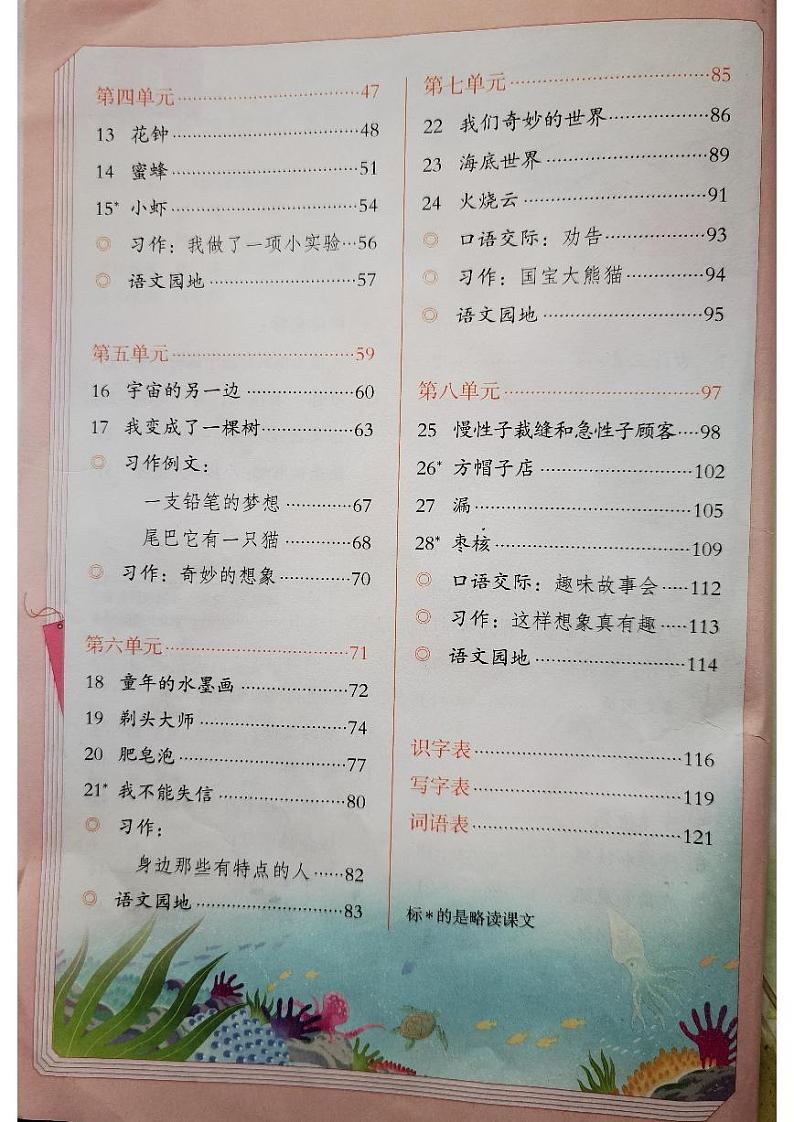 第四单元 47
13 花钟 48
14 蜜蜂 51
15* 小虾 54
◎ 习作：我做了一项小实验 56
◎ 语文园地 57
第五单元 59
16 宇宙的另一边 60
17 我变成了一棵树 63
◎ 习作例文：
一支铅笔的梦想 67
尾巴它有一只猫 68
◎ 习作：奇妙的想象 70
第六单元 71
18 童年的水墨画 72
19 剃头大师 74
20 肥皂泡 77
21* 我不能失信 80
◎ 习作：
身边那些有特点的人 82
◎ 语文园地 83
第七单元 85
22 我们奇妙的世界 86
23 海底世界 89
24 火烧云 91
◎ 口语交际：劝告 93
◎ 习作：国宝大熊猫 94
◎ 语文园地 95
第八单元 97
25 慢性子裁缝和急性子顾客 98
26* 方帽子店 102
27 漏 105
28* 枣核 109
◎ 口语交际：趣味故事会 112
◎ 习作：这样想象真有趣 113
◎ 语文园地 114
识字表 116
写字表 119
词语表 121
标*的是略读课文